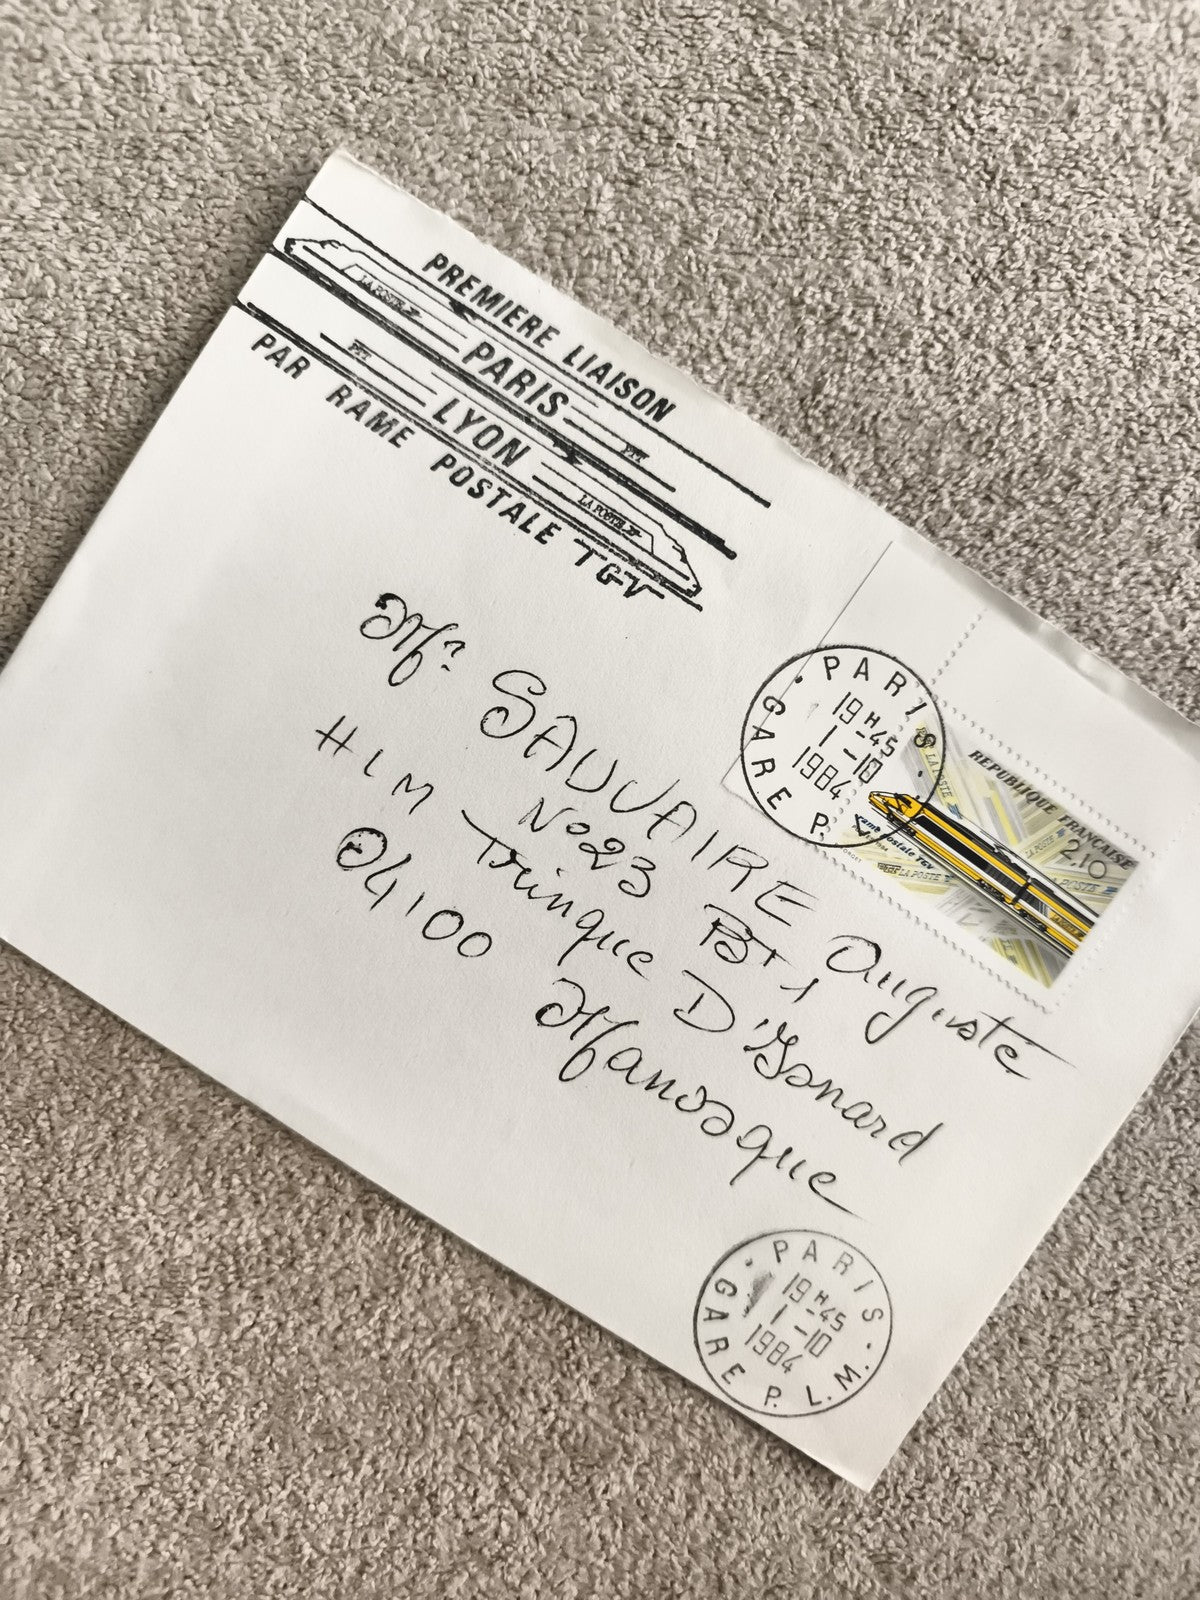 PREMIERE LIAISON
LA POSTE
PARIS
PTT
PTT
LYON
LA POSTE
PAR RAME POSTALE TGV
PARIS
19H45
1-10
1984
GARE P.
REPUBLIQUE FRANÇAISE
2,10
LA POSTE
LA POSTE
LA POSTE
rame postale TGV
LA POSTE
Mr SAUVAIRE Auguste
No 23 BT 1
HLM Trinque D'Isnard
04100 Manosque
PARIS
19H45
1-10
1984
GARE P.L.M.